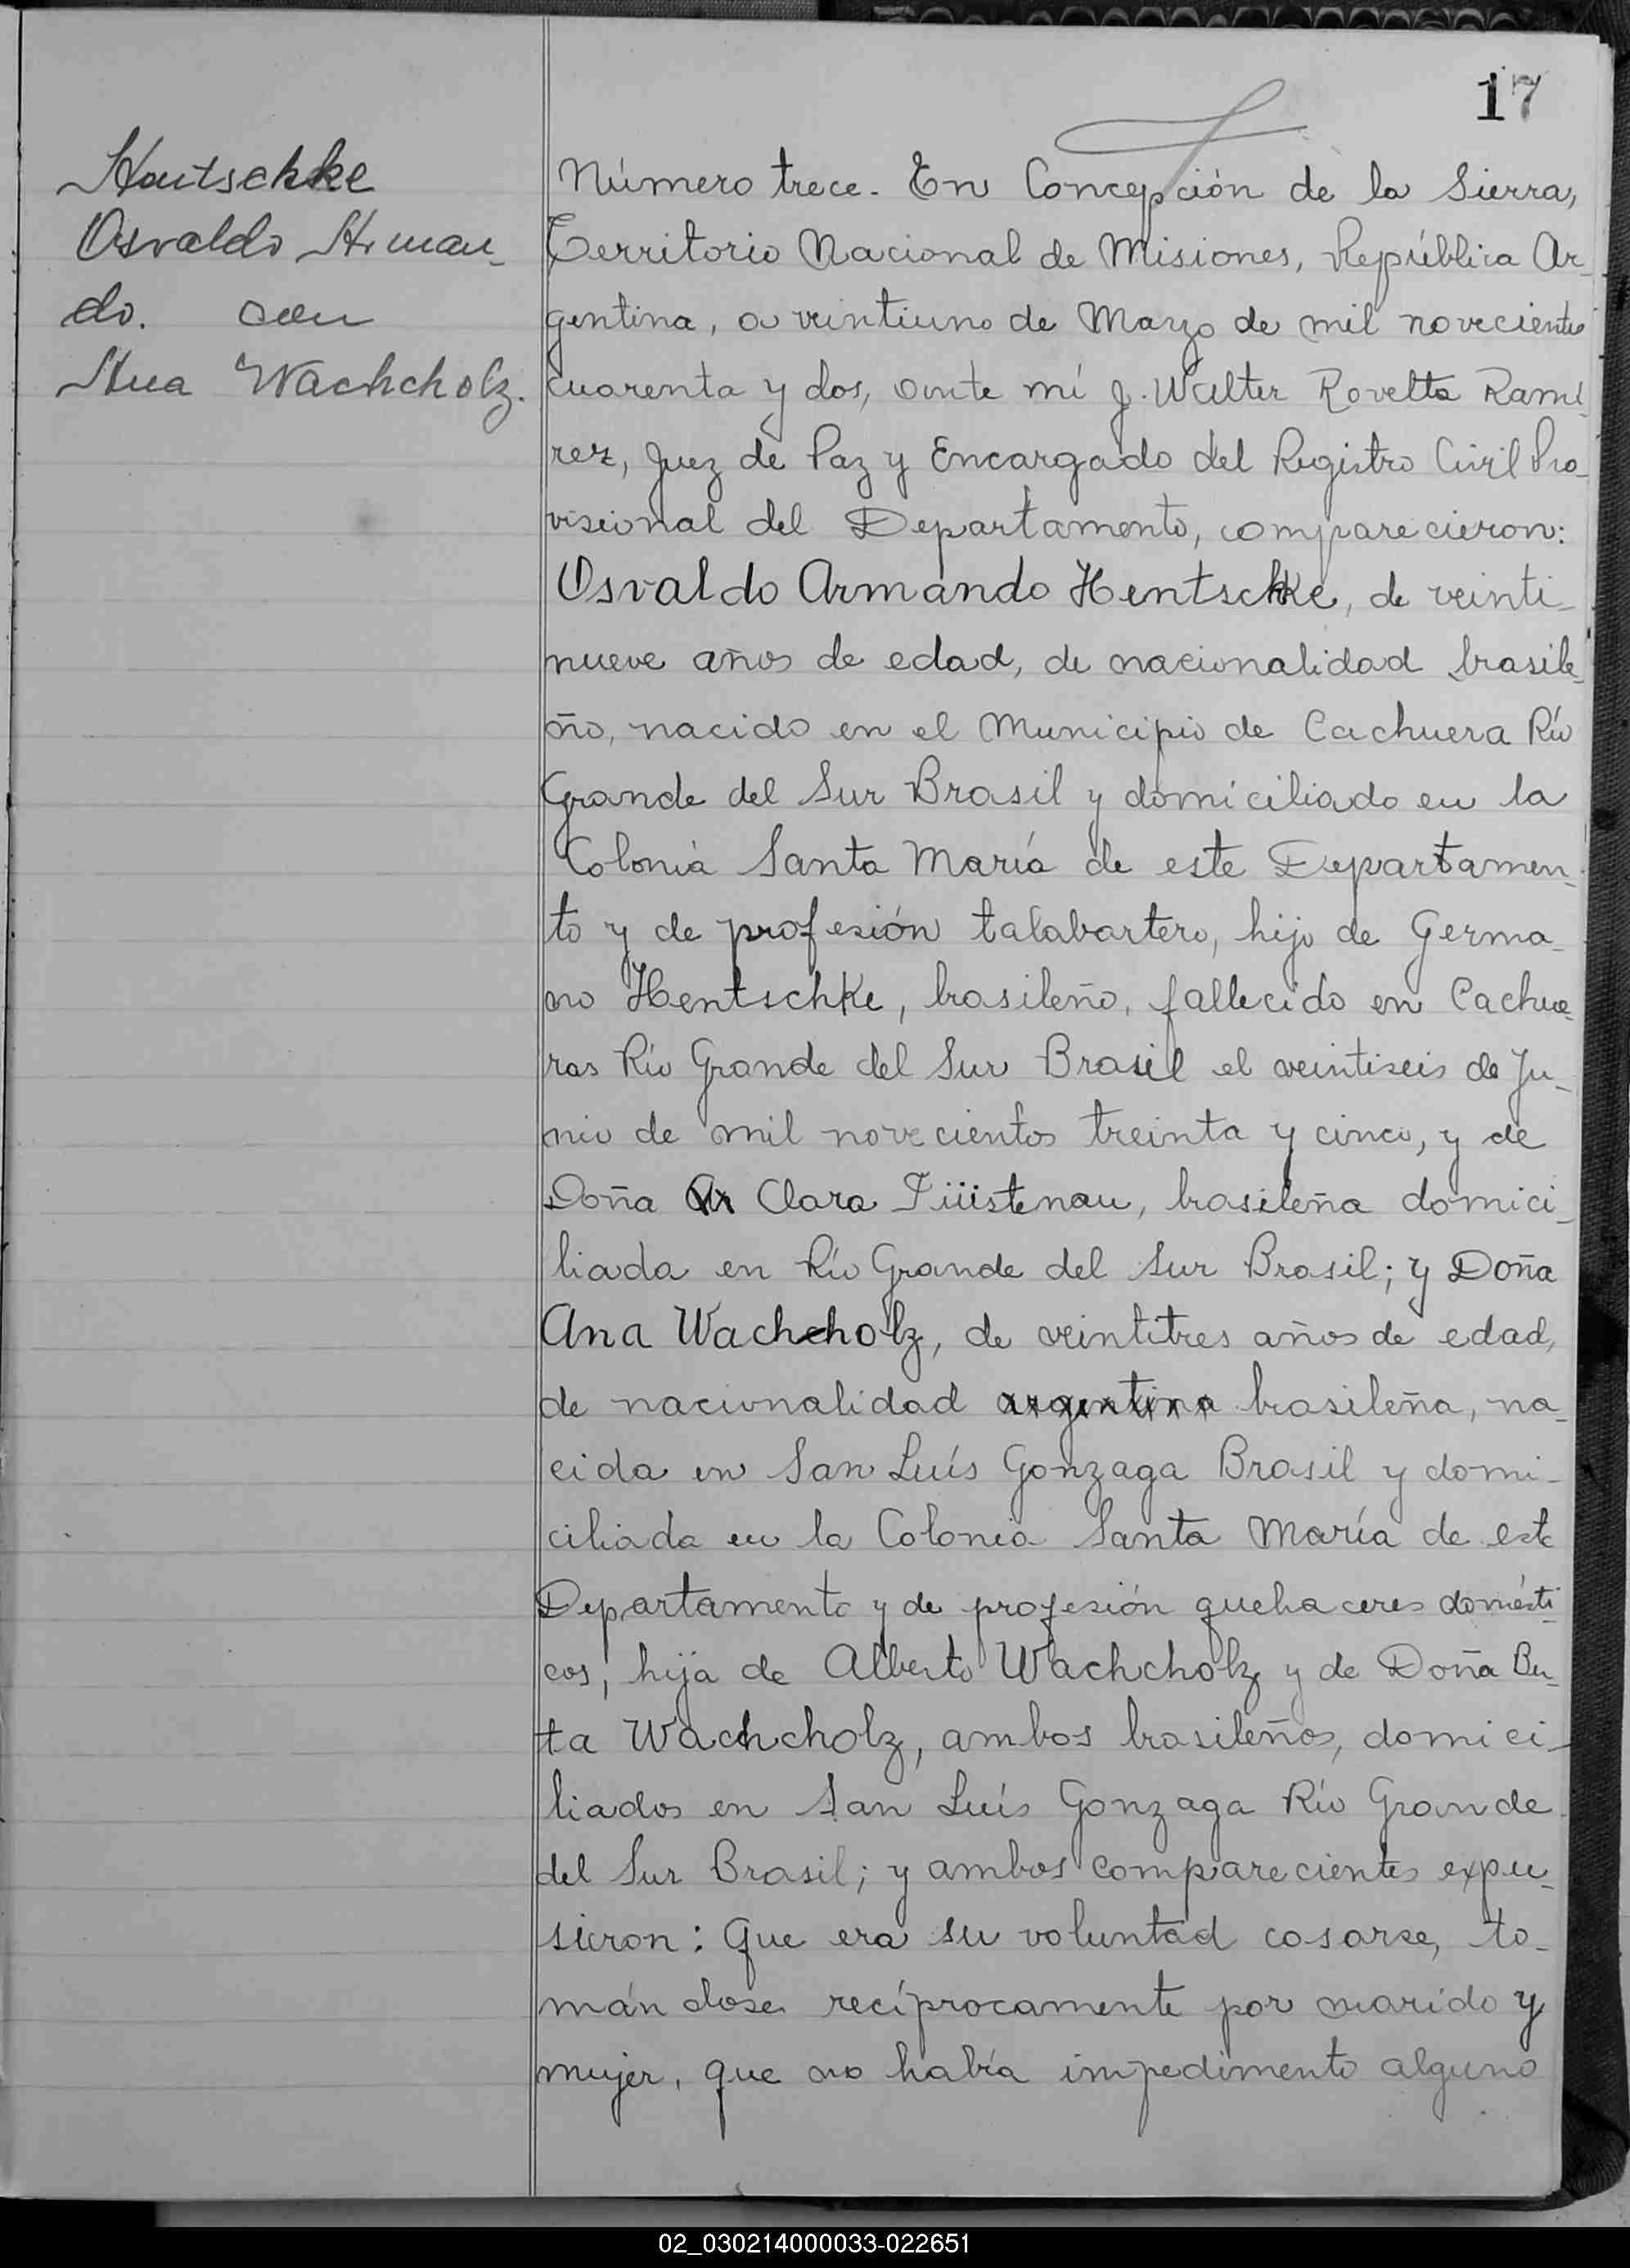 17
Hentschke
Osvaldo Arman-
do. con
Ana Wachcholz.
Número trece. En Concepción de la Sierra,
Territorio Nacional de Misiones, República Ar-
gentina, a veintiuno de Marzo de mil novecientos
cuarenta y dos, ante mí J. Walter Rovelta Ramí-
rez, Juez de Paz y Encargado del Registro Civil Pro-
visional del Departamento, comparecieron:
Osvaldo Armando Hentschke, de veinti-
nueve años de edad, de nacionalidad brasile-
ño, nacido en el Municipio de Cachuera Río
Grande del Sur Brasil y domiciliado en la
Colonia Santa María de este Departamen-
to y de profesión talabartero, hijo de Germa-
no Hentschke, brasileño, fallecido en Cachue-
ras Río Grande del Sur Brasil el veintiseis de Ju-
nio de mil novecientos treinta y cinco, y de
Doña Clara Füistenau, brasileña domici-
liada en Río Grande del Sur Brasil; y Doña
Ana Wachcholz, de veintitres años de edad,
de nacionalidad argentina brasileña, na-
cida en San Luís Gonzaga Brasil y domi-
ciliada en la Colonia Santa María de este
Departamento y de profesión quehaceres domésti-
cos, hija de Alberto Wachcholz y de Doña Ber-
ta Wachcholz, ambos brasileños, domici-
liados en San Luís Gonzaga Río Grande
del Sur Brasil; y ambos comparecientes expu-
sieron: Que era su voluntad casarse, to-
mándose recíprocamente por marido y
mujer, que no había impedimento alguno
02_030214000033-022651